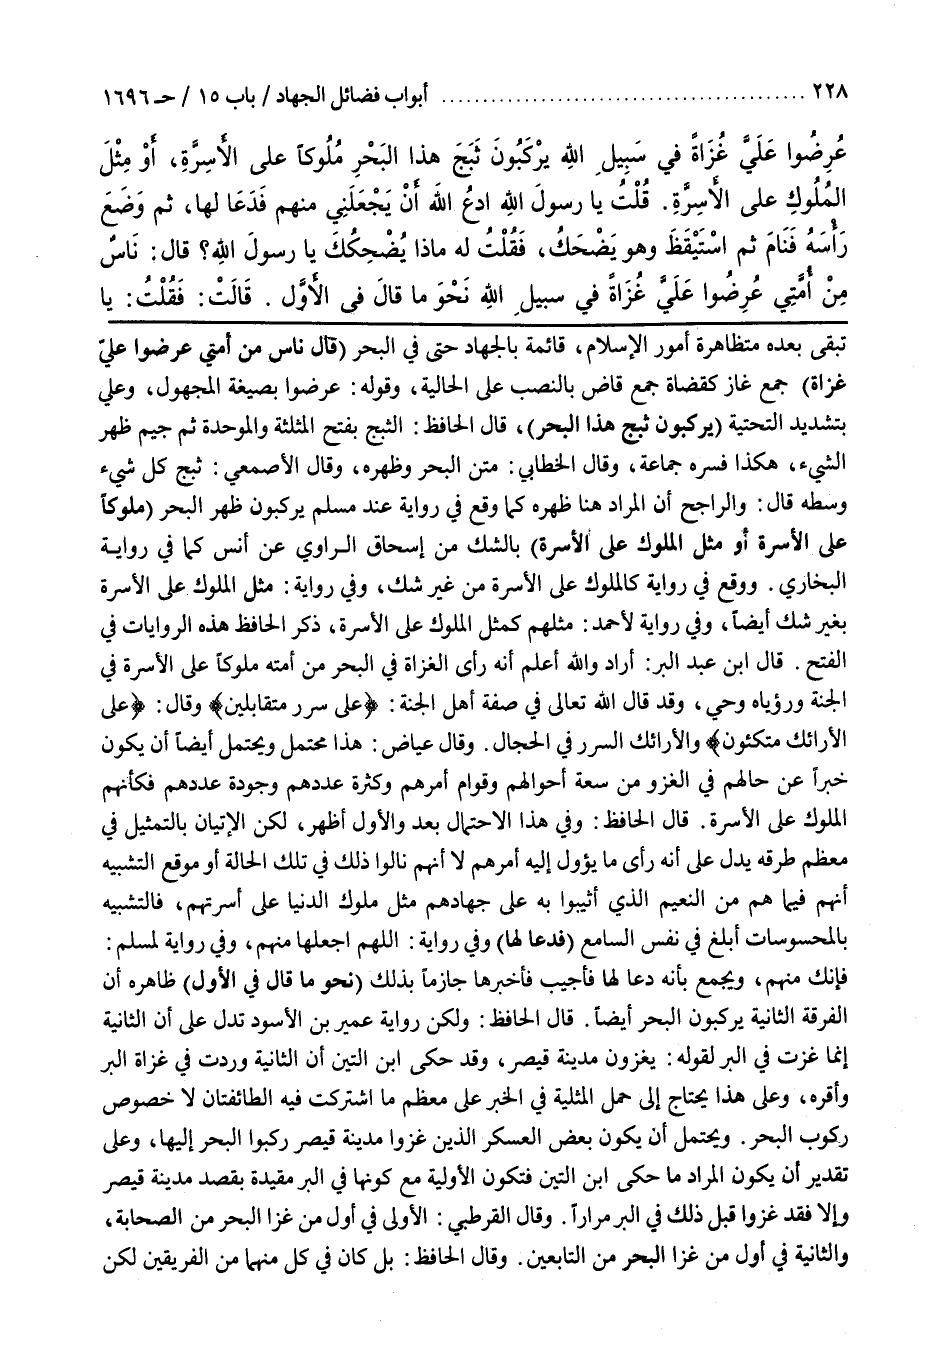 ٢٢٨ ........................................ أبواب فضائل الجهاد / باب ١٥ / حـ ١٦٩٦
عُرِضُوا عَلَيَّ غُزَاةً في سَبِيلِ الله يرْكَبُونَ ثَبَجَ هذا البَحْرِ مُلُوكاً على الأَسِرَّةِ، أَوْ مِثْلَ
المُلُوكِ على الأسِرَّةِ. قُلْتُ يا رسولَ اللهِ ادعُ اللهَ أَنْ يَجْعَلَنِي منهم فَدَعَا لها، ثم وَضَعَ
رَأْسَهُ فَنَامَ ثم اسْتَيْقَظَ وهو يَضْحَكُ، فَقُلْتُ له ماذا يُضْحِكُكَ يا رسولَ اللهِ؟ قال: نَاسٌ
مِنْ أُمَّتِي عُرِضُوا عَلَيَّ غُزَاةً في سبيلِ اللهِ نَحْوَ ما قالَ في الأَوَّلِ. قَالَتْ: فَقُلْتُ: يا
تبقى بعده متظاهرة أمور الإسلام، قائمة بالجهاد حتى في البحر (قال ناس من أمتي عرضوا عليّ
غزاة) جمع غاز كقضاة جمع قاض بالنصب على الحالية، وقوله: عرضوا بصيغة المجهول، وعلي
بتشديد التحتية (يركبون ثبج هذا البحر)، قال الحافظ: الثبج بفتح المثلثة والموحدة ثم جيم ظهر
الشيء، هكذا فسره جماعة، وقال الخطابي: متن البحر وظهره، وقال الأصمعي: ثبج كل شيء
وسطه قال: والراجح أن المراد هنا ظهره كما وقع في رواية عند مسلم يركبون ظهر البحر (ملوكاً
على الأسرة أو مثل الملوك على الأسرة) بالشك من إسحاق الراوي عن أنس كما في رواية
البخاري. ووقع في رواية كالملوك على الأسرة من غير شك، وفي رواية: مثل الملوك على الأسرة
بغير شك أيضاً، وفي رواية لأحمد: مثلهم كمثل الملوك على الأسرة، ذكر الحافظ هذه الروايات في
الفتح. قال ابن عبد البر: أراد والله أعلم أنه رأى الغزاة في البحر من أمته ملوكاً على الأسرة في
الجنة ورؤياه وحي، وقد قال الله تعالى في صفة أهل الجنة: ﴿على سرر متقابلين﴾ وقال: ﴿على
الأرائك متكئون﴾ والأرائك السرر في الحجال. وقال عياض: هذا محتمل ويحتمل أيضاً أن يكون
خبراً عن حالهم في الغزو من سعة أحوالهم وقوام أمرهم وكثرة عددهم وجودة عددهم فكأنهم
الملوك على الأسرة. قال الحافظ: وفي هذا الاحتمال بعد والأول أظهر، لكن الإتيان بالتمثيل في
معظم طرقه يدل على أنه رأى ما يؤول إليه أمرهم لا أنهم نالوا ذلك في تلك الحالة أو موقع التشبيه
أنهم فيما هم من النعيم الذي أثيبوا به على جهادهم مثل ملوك الدنيا على أسرتهم، فالتشبيه
بالمحسوسات أبلغ في نفس السامع (فدعا لها) وفي رواية: اللهم اجعلها منهم، وفي رواية لمسلم:
فإنك منهم، ويجمع بأنه دعا لها فأجيب فأخبرها جازماً بذلك (نحو ما قال في الأول) ظاهره أن
الفرقة الثانية يركبون البحر أيضاً. قال الحافظ: ولكن رواية عمير بن الأسود تدل على أن الثانية
إنما غزت في البر لقوله: يغزون مدينة قيصر، وقد حكى ابن التين أن الثانية وردت في غزاة البر
وأقره، وعلى هذا يحتاج إلى حمل المثلية في الخبر على معظم ما اشتركت فيه الطائفتان لا خصوص
ركوب البحر. ويحتمل أن يكون بعض العسكر الذين غزوا مدينة قيصر ركبوا البحر إليها، وعلى
تقدير أن يكون المراد ما حكى ابن التين فتكون الأولية مع كونها في البر مقيدة بقصد مدينة قيصر
وإلا فقد غزوا قبل ذلك في البر مراراً. وقال القرطبي: الأولى في أول من غزا البحر من الصحابة،
والثانية في أول من غزا البحر من التابعين. وقال الحافظ: بل كان في كل منهما من الفريقين لكن